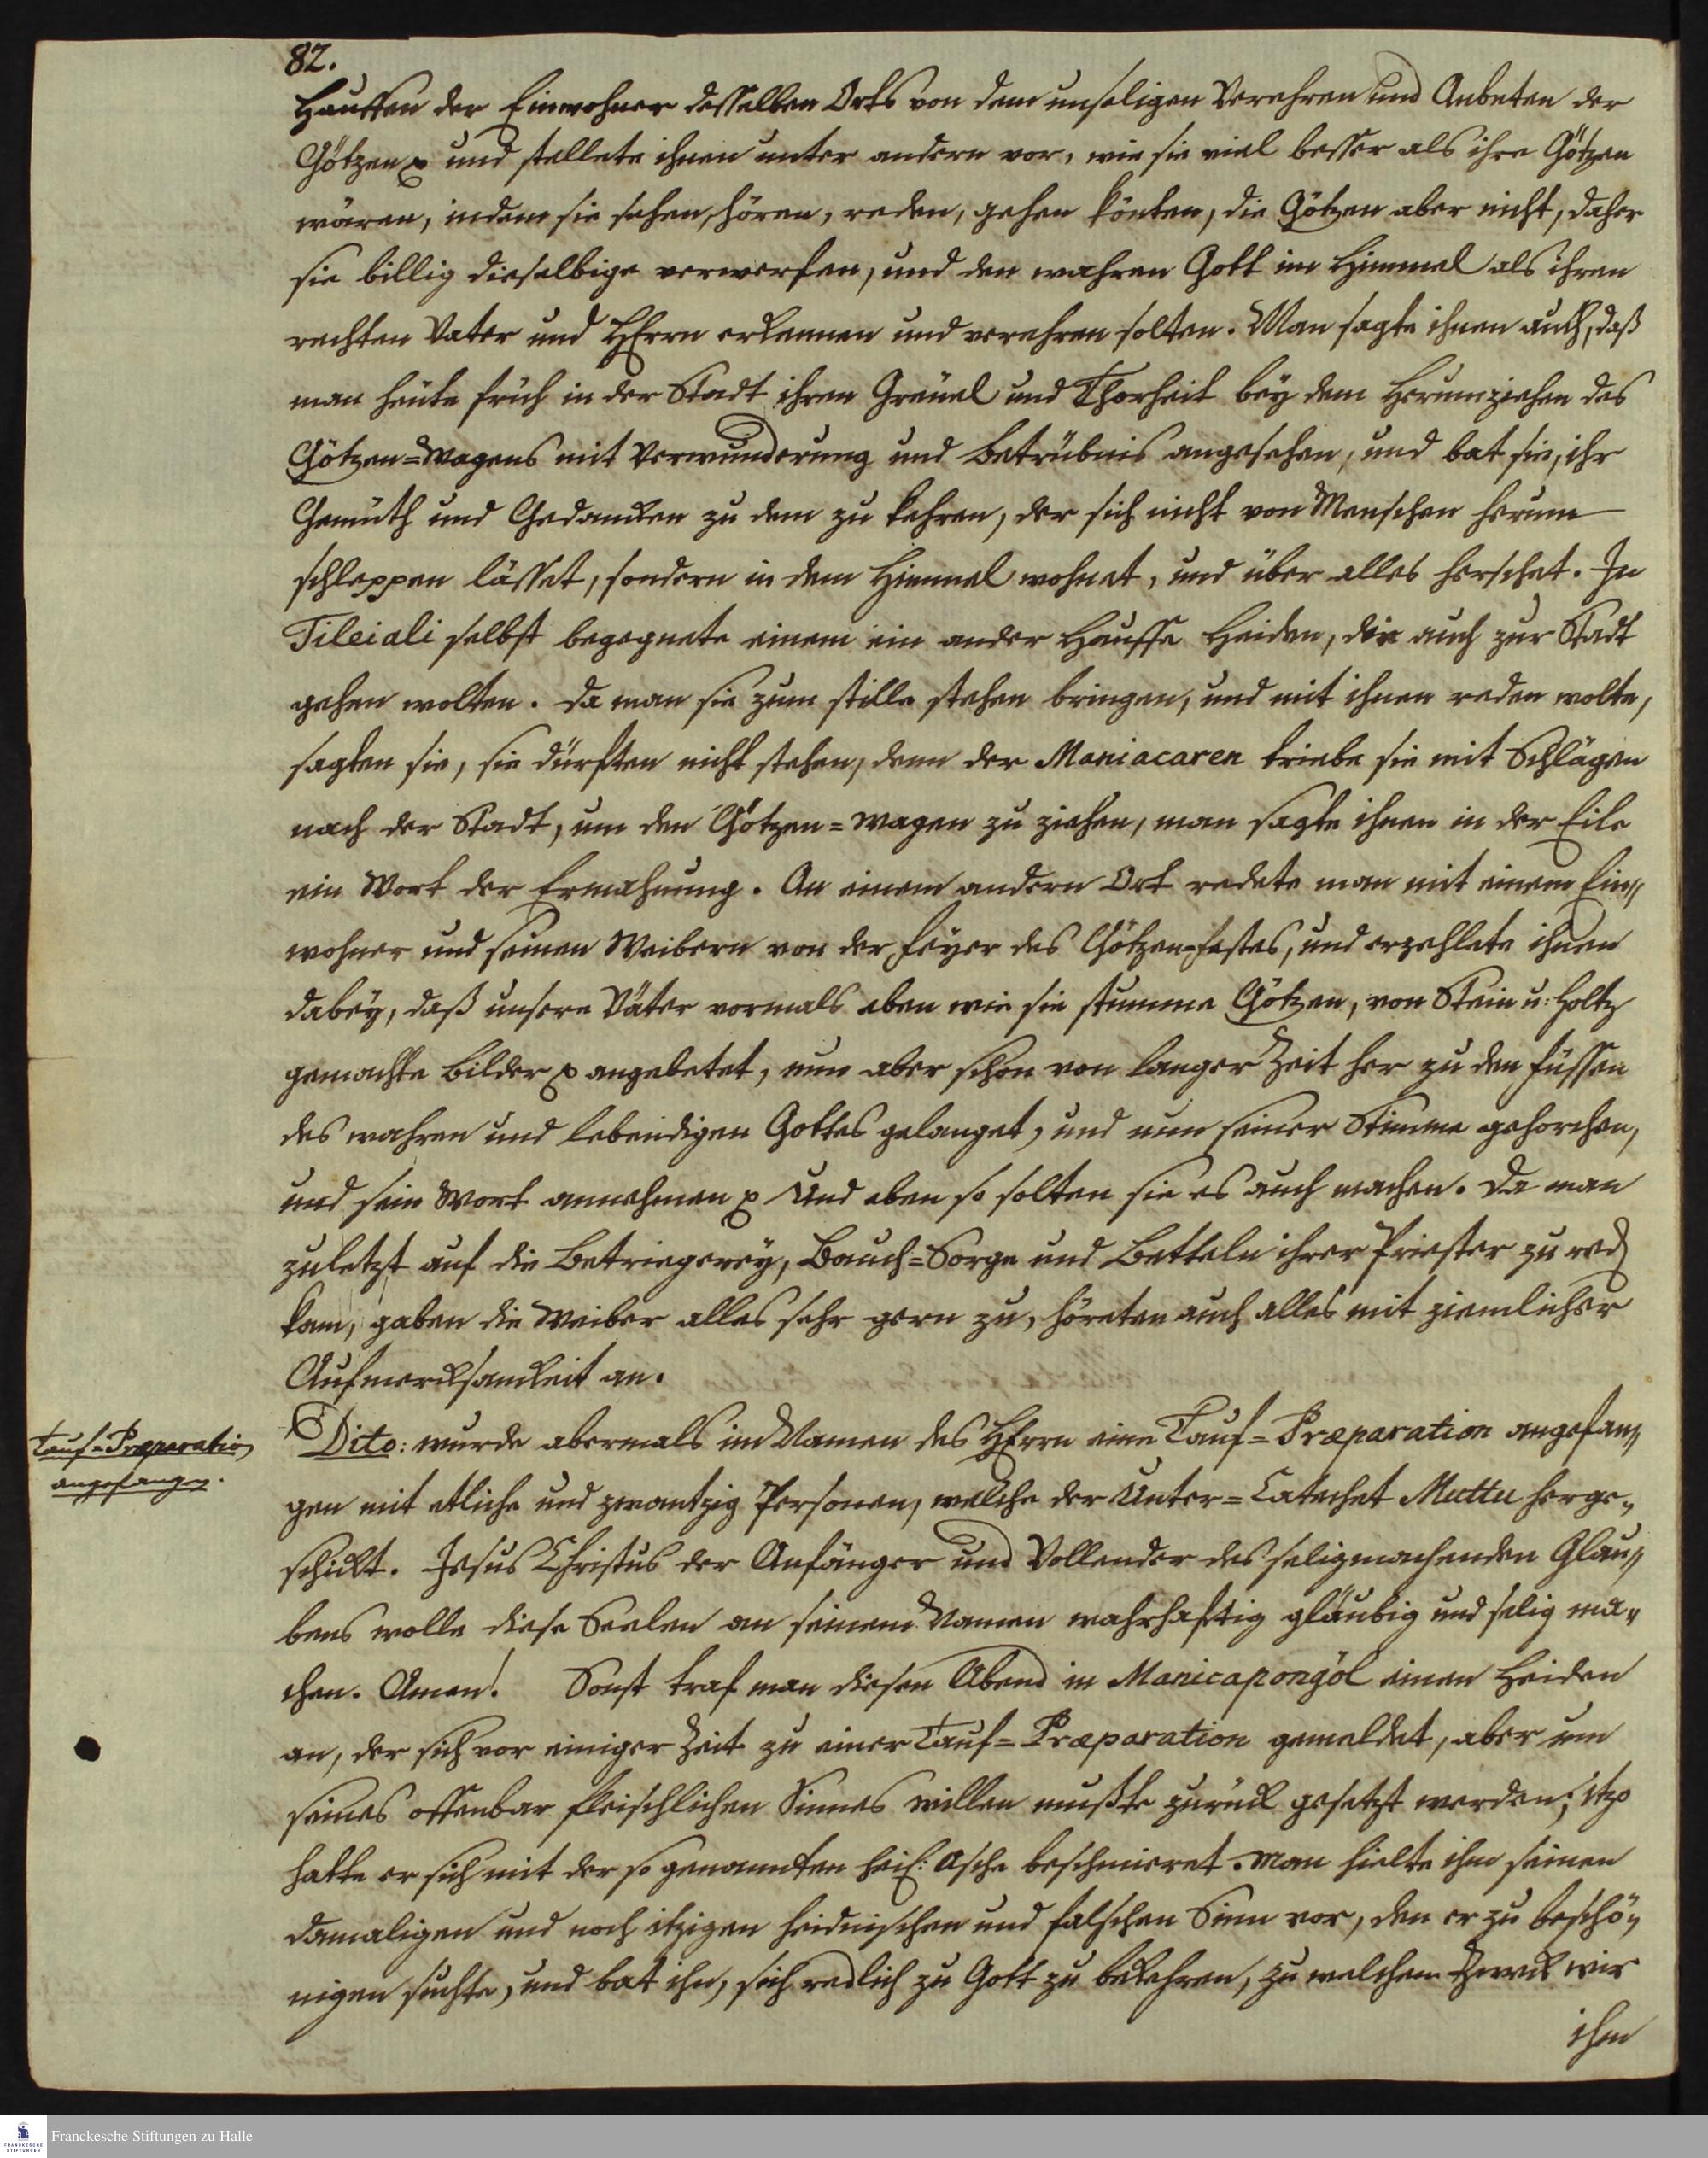 82.
Hauffen der Einwohner desselben Orts von dem unseligen Verehren und Anbeten der
Götzen p und stellete ihnen unter andern vor, wie sie viel besser als ihre Götzen
wären, indem sie sehen, hören, reden, gehen könten, die Götzen aber nicht, daher
sie billig dieselbige verwerfen, und den wahren Gott im Himmel als ihren
rechten Vater und HErrn erkennen und verehren solten. Man sagte ihnen auch, daß
man heute früh in der Stadt ihren Greuel und Thorheit bey dem Herumziehen des
Götzen=Wagens mit Verwunderung und Betrübnis angesehen, und bat sie, ihr
Gemüth und Gedancken zu dem zu kehren, der sich nicht von Menschen herum
schleppen lässet, sondern in dem Himmel wohnet, und über alles herschet. In
Tileiali selbst begegnete einem ein ander Hauffe Heiden, die auch zur Stadt
gehen wolten. Da man sie zum stille stehen bringen, und mit ihnen reden wolte,
sagten sie, sie dürften nicht stehen, denn der Maniacaren triebe sie mit Schlägen
nach der Stadt, um den Götzen=Wagen zu ziehen, man sagte ihnen in der Eile
ein Wort der Ermahnung. An einem andern Ort redete man mit einem Ein„
wohner und seinen Weibern von der Feyer des Götzen=Festes, und erzehlete ihnen
dabey, daß unsere Väter vormals eben wie sie stumme Götzen, von Stein u: Holtz
gemachte Bilder p angebetet, nun aber schon von langer Zeit her zu den Füssen
des wahren und lebendigen Gottes gelanget, und nun seiner Stimme gehorchen,
und sein Wort annehmen p Und eben so solten sie es auch machen. Da man
zuletzt auf die Betriegerey, Bauch=Sorge und Betteln ihrer Priester zu red
kam, gaben die Weiber alles sehr gern zu, höreten auch alles mit ziemlicher
Aufmercksamkeit an.
Tauf=Præparation
angefangen.
Dito: wurde abermals im Namen des HErrn eine Tauf=Præparation angefan„
gen mit etliche und zwantzig Personen, welche der Unter=Catechet Muttu herge„
schickt. Jesus Christus der Anfänger und Vollender des seligmachenden Glau„
bens wolle diese Seelen an seinem Namen wahrhaftig gläubig und selig ma„
chen. Amen! Sonst traf man diesen Abend in Manicapongöl einen Heiden
an, der sich vor einiger Zeit zu einer Tauf=Præparation gemeldet, aber um
seines offenbar fleischlichen Sinnes willen mußte zurück gesetzt werden; itzo
hatte er sich mit der so genannten heil: Asche beschmieret. Man hielte ihm seinen
damaligen und noch itzigen heidnischen und falschen Sinn vor, den er zu beschö„
nigen suchte, und bat ihn, sich redlich zu Gott zu bekehren, zu welchem Zweck wir
ihm
Franckesche Stiftungen zu Halle